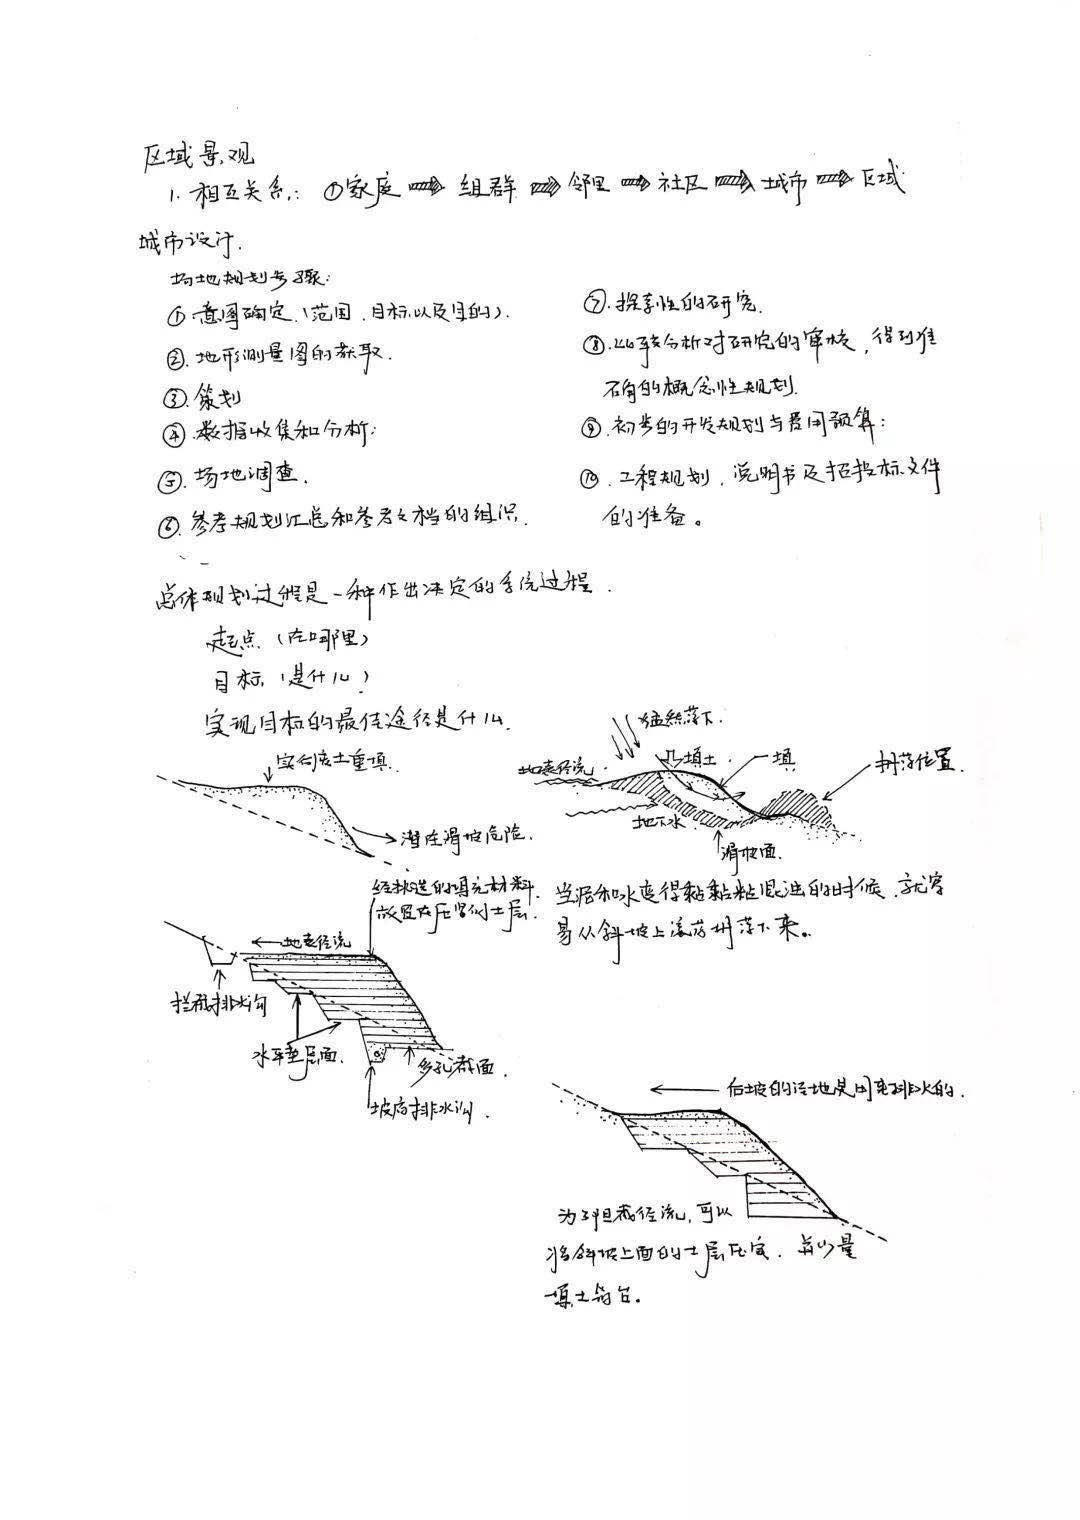 区域景观
1. 相互关系: ①家庭 ⇒ 组群 ⇒ 邻里 ⇒ 社区 ⇒ 城市 ⇒ 区域
城市设计.
场地规划步骤:
①.意图确定.(范围.目标以及目的).
②.地形测量图的获取.
③.策划
④.数据收集和分析:
⑤.场地调查.
⑥.参考规划汇总和参考文档的组织.
⑦.探索性的研究.
⑧.比较分析对研究的审核,得到准
确的概念性规划.
⑨.初步的开发规划与费用预算:
⑩.工程规划,说明书及招投标文件
的准备。
总体规划过程是一种作出决定的系统过程.
起点(在哪里)
目标(是什么)
实现目标的最佳途径是什么.
重填.
潜在滑坡危险.
落下.
地表径流
填土
填
坍落位置.
地下水
滑坡面.
当泥和水变得黏黏粘混浊的时候.就容
易从斜坡上滚落坍落下来。
经挑选的填充材料.
放置在压紧的土层.
地表径流
拦截排水沟
水平垫层面.
多孔截面.
坡底排水沟.
后坡的台地是用来排水的.
为了阻截径流,可以
将斜坡上面的土层压实.
填土